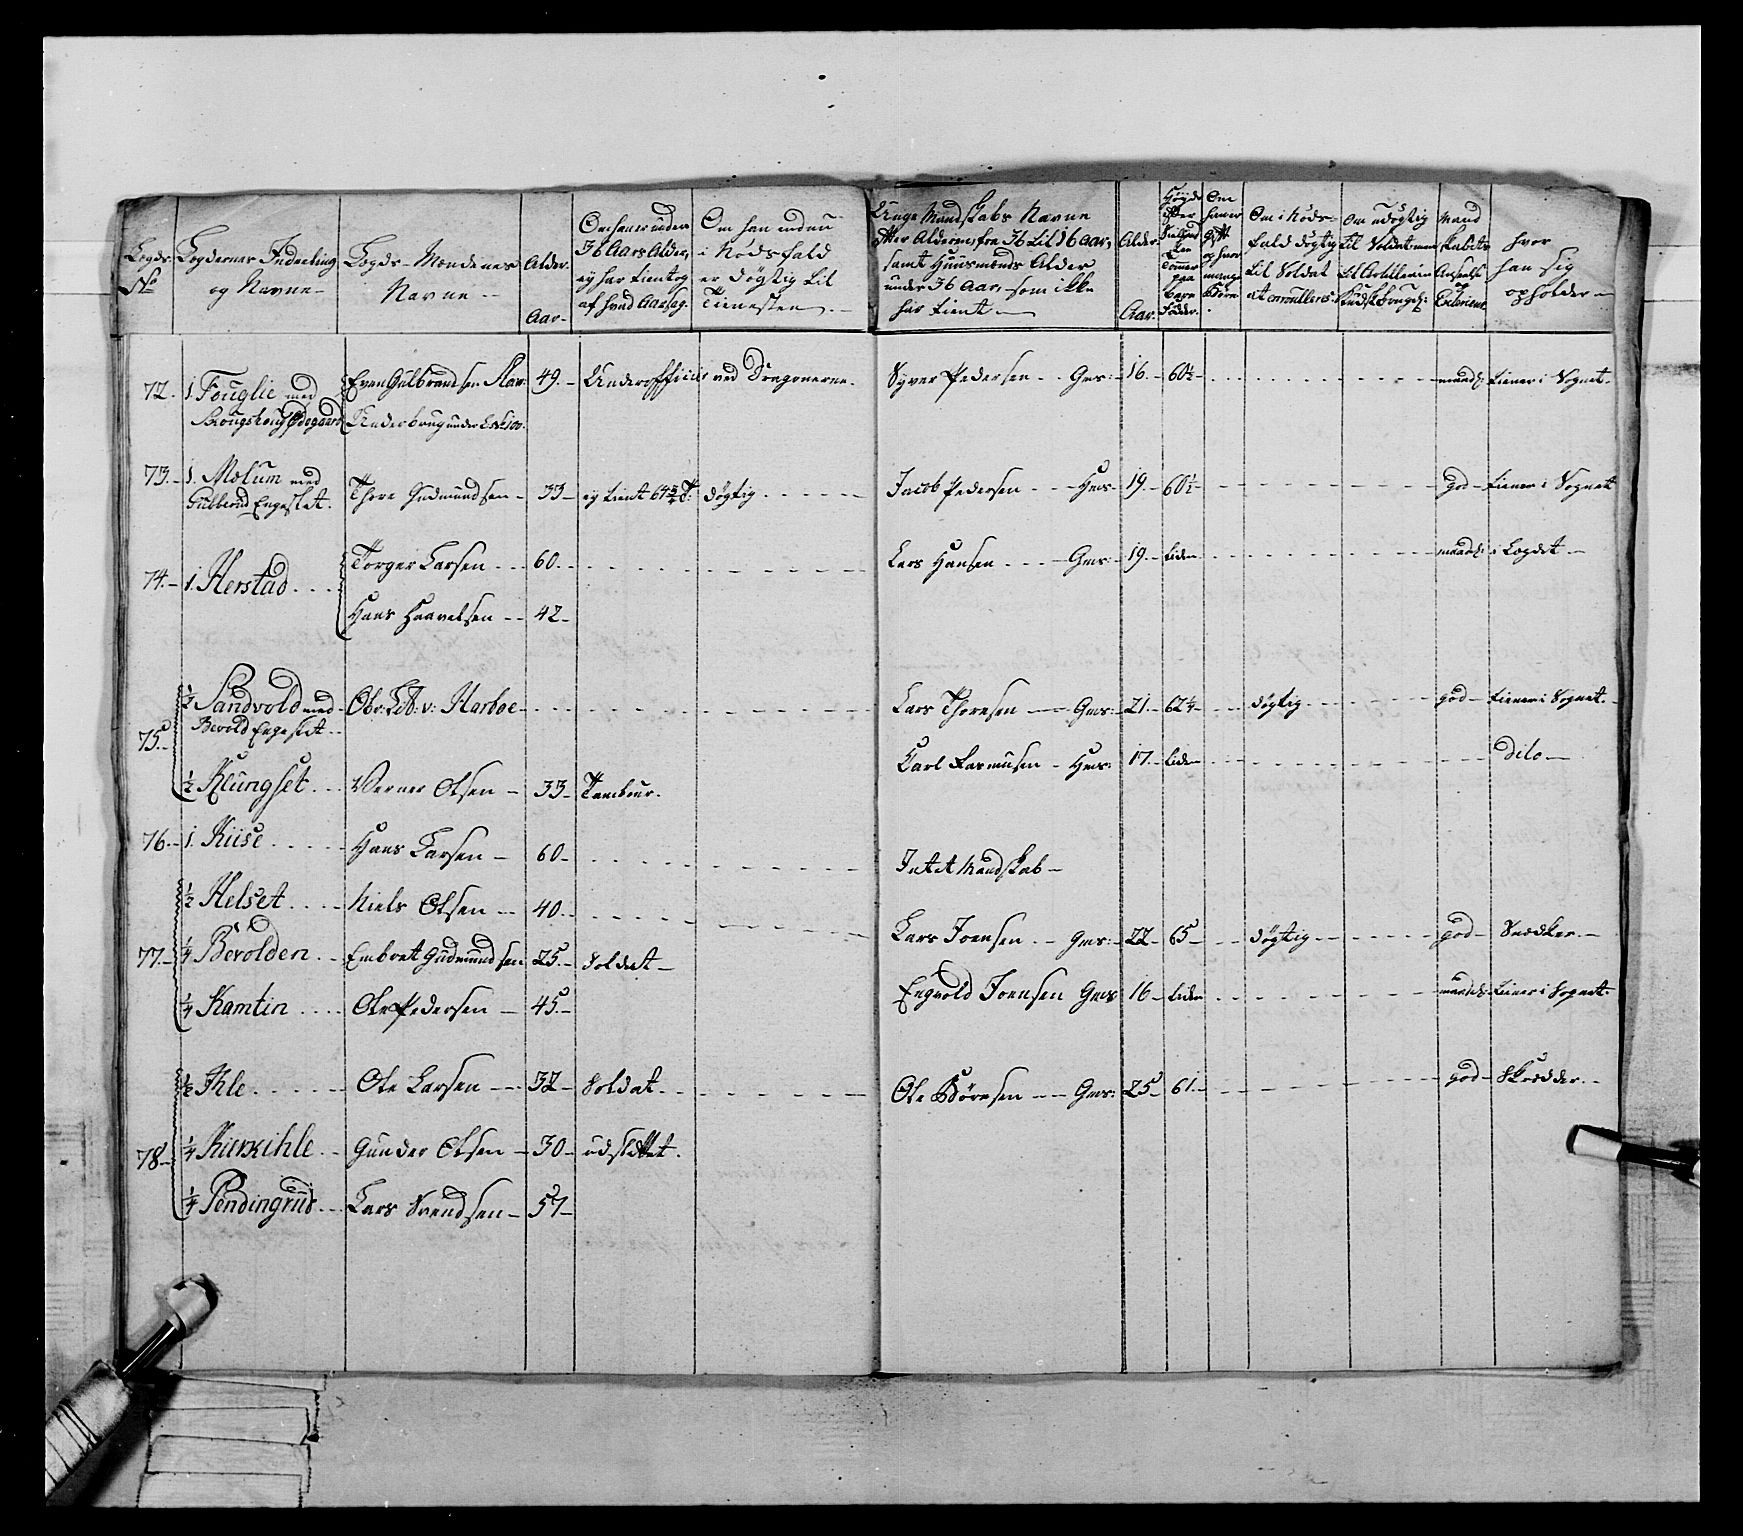 Lægds No
Lægdernes Inddeeling og Navne
Lægds-Mændenes Navne
Alder Aar
Om han er under 36 Aars Alder, ey har tient og af hvad Aarsag.
Om han endnu i Nødsfald er døgtig til Tienesten.
Unge Mandskabs Navne efter Alderen, fra 36 til 16 Aar, samt Huusmænds Alder under 36 Aar, som ikke har tient
Alder Aar.
Om haver og hvor mange Børn
Om i Nødsfald døgtig til Soldat at enroulleres.
Om udøgtig til Soldat men til Artillerie
Mandskabets Exterieur
hvor han sig opholder
72. 1 Fouglie med Ødegaard Even Gulbrandsen 49. Underofficier ved Dragonerne. Syver Pedersen Gms: 16. 60½ tiener i Sognet.
73. 1. Molum med Engeslet. Thore Gudmundsen 33 ey tient 64¾ T. døgtig Jacob Pedersen Hms 19. 60½ god tiener i Sognet
74. 1. Herstad Torger Larsen 60. Lars Hansen Gms: 19. liden i Lægdet
Hans Haavelsen 42
75. ½ Sandvold med Bevold Engeslet Obr: Ltt: v: Harboe Lars Thoresen Gms: 21. 62¼ døgtig god tiener i Sognet.
½ Klüngset Verner Olsen 33 Tambour. Carl Rasmusen Hms: 17. liden dito
76. 1. Kiise Hans Larsen 60 Intet Mandskab
½ Helset Niels Olsen 40.
77. ¼ Bevolden Embret Gudmundsen 25. Soldat Lars Joensen Gms: 22 65 døgtig god Snedker
¼ Kamtin Ole Pedersen 45. Engvold Joensen Gms 16 liden tiener i Sognet.
½ Ihle Ole Larsen 32 Soldat Ole Børresen Gms: 25 61. god Skrædder
78. ¼ Gunder Olsen 30 udslettet.
¼ Pendingrüd Lars Svendsen 57